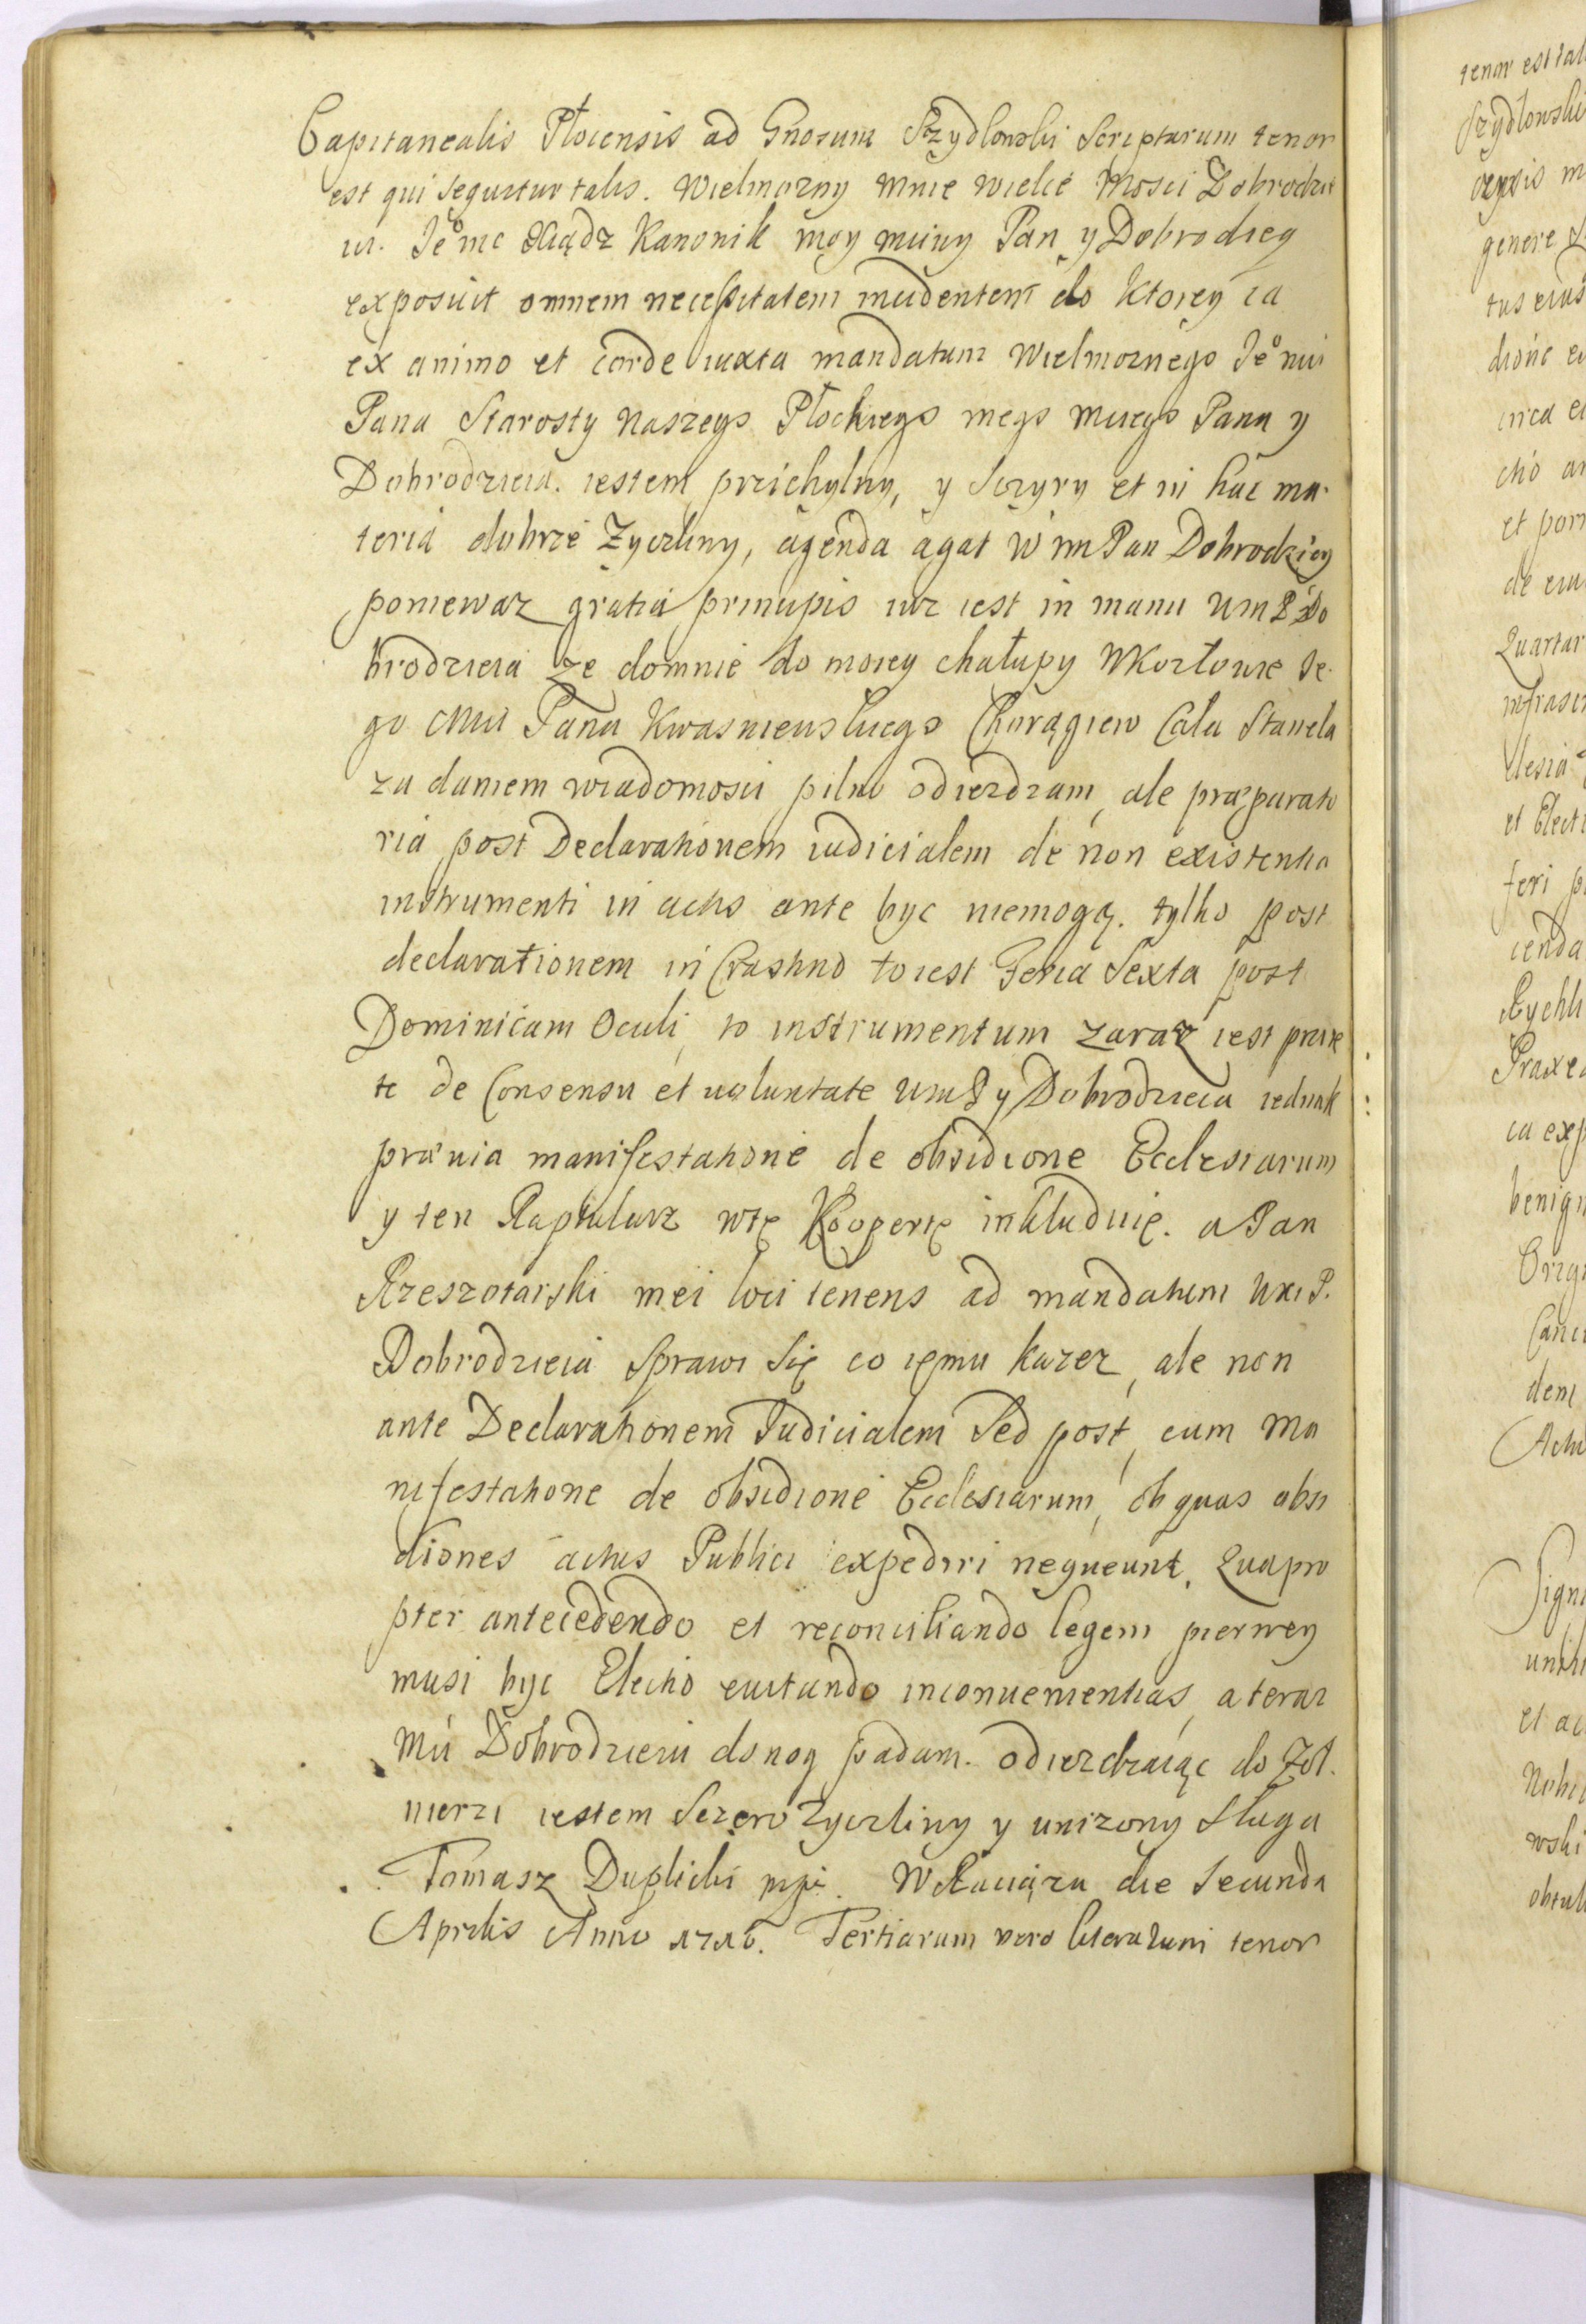 Capitanealis Płocensis ad Gnosum Szydlowski Scriptarum tenor
est qui sequitur talis. Wielmozny Mnie wielce Mosci Dobrodzie
iu. Jeomc Xiądz Kanonik moy mciwy Pan y Dobrodiey
exposuit omnem necessitatem incidentem do ktorey ia
ex animo et corde iuxta mandatum Wielmoznego Jeo mci
Pana Starosty Naszego Płockiego mego Mciego Pana y
Dobrodzieia. iestem przichylny, y Sczyry et in hac ma-
teria dobrze Zyczliwy, agenda agat W m Pan Dobrodziey
poniewaz gratia principis iuz iest in manu Um P Do
brodzieia ze domnie do moiey chałupy WKozłowie Je-
go Mci Pana Kwasniewskiego Chorągiew Cala Stanela
za daniem wiadomosci pilno odiezdzam, ale præparato
ria post Declarationem iudicialem de non existentia
instrumenti in actis ante byc niemogą. tylko post
declarationem in Crastino to iest Feria Sexta post
Dominicam Oculi, to instrumentum zaraz iest
te de Consensu et uoluntate Um P y Dobrodzieia iednak
præuia manifestatione de obsidione Ecclesiarum
y ten Raptularz wtę Kooperte inkluduię. a Pan
Rzeszotarski mei loci tenens ad mandatum Um P.
Dobrodzieia Sprawi Się co iemu kazez, ale non
ante Declarationem Iudicialem Sed post, cum Ma
nifestatione de obsidione Ecclesiarum, ob quas obsi
diones actus Publici expediri nequeunt. Quapro
pter antecedendo et reconciliando legem pierwey
musi byc Electio euitando inconuenientias, a teraz
Mci Dobrodzieiu donog padam. odiezdzaiąc do Zoł-
nierzi iestem Sczero Zyczliwy y unizony Sługa
Tomasz Duplicki mpi. WRaciązu die Secunda
Aprilis Anno 1716. Tertiarum vero literarum tenor